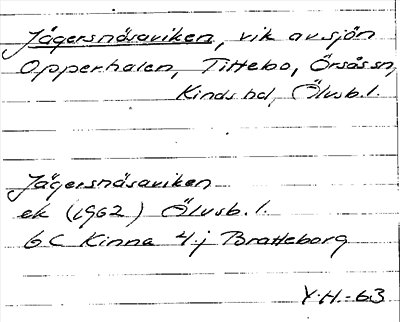 Jägersnäsaviken, vik av sjön
Opperhalen, Tittebo, Örsås sn,
Kinds hd, Älvsb. l.
Jägersnäsaviken
ek (1962) Älvsb. l.
6 C Kinna 4 j Bratteborg
Y.H.-63